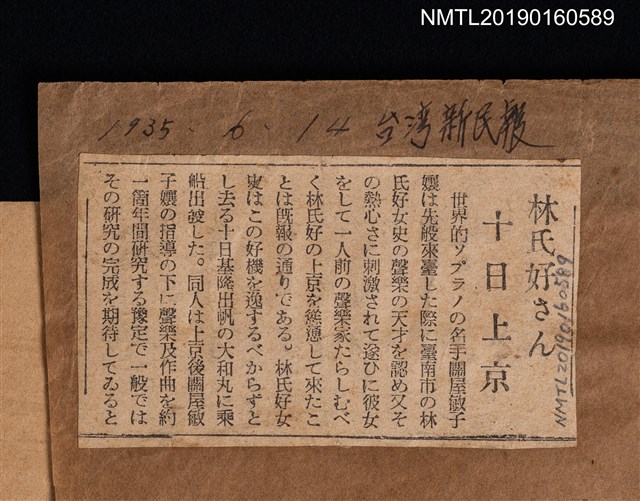 NMTL20190160589
1935.6.14 台湾新民報
林氏好さん
十日上京
世界的ソプラノの名手關屋敏子
孃は先般來臺した際に臺南市の林
氏好女史の聲樂の天才を認め又そ
の熱心さに刺激されて遂ひに彼女
をして一人前の聲樂家たらしむべ
く林氏好の上京を慫慂して來たこ
とは既報の通りである。林氏好女
史はこの好機を逸するべからずと
し去る十日基隆出帆の大和丸に乘
船出發した。同人は上京後關屋敏
子孃の指導の下に聲樂及作曲を約
一箇年間研究する豫定で一般では
その研究の完成を期待してゐると
NMTL20190160589